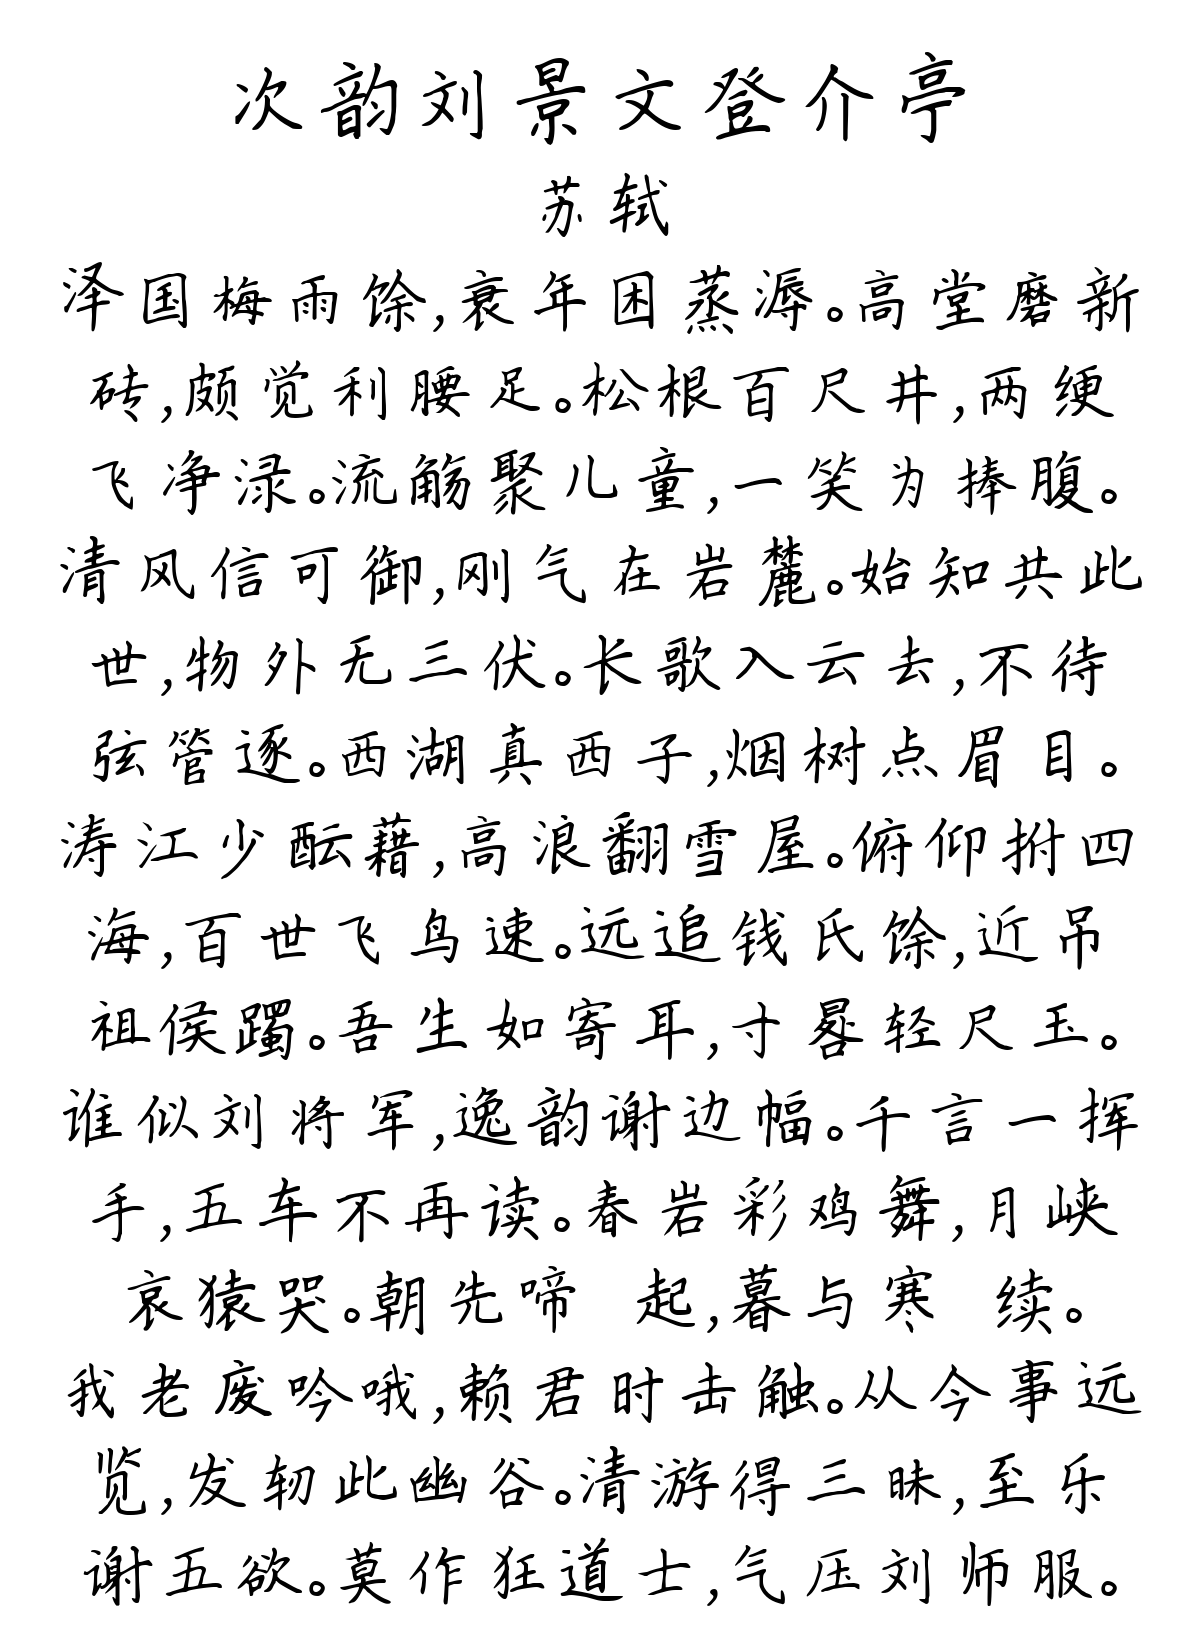 次韵刘景文登介亭
苏轼
泽国梅雨馀,衰年困蒸溽。高堂磨新
砖,颇觉利腰足。松根百尺井,两绠
飞净渌。流觞聚儿童,一笑为捧腹。
清风信可御,刚气在岩麓。始知共此
世,物外无三伏。长歌入云去,不待
弦管逐。西湖真西子,烟树点眉目。
涛江少酝藉,高浪翻雪屋。俯仰拊四
海,百世飞鸟速。远追钱氏馀,近吊
祖侯躅。吾生如寄耳,寸晷轻尺玉。
谁似刘将军,逸韵谢边幅。千言一挥
手,五车不再读。春岩彩鸡舞,月峡
哀猿哭。朝先啼 起,暮与寒 续。
我老废吟哦,赖君时击触。从今事远
览,发轫此幽谷。清游得三昧,至乐
谢五欲。莫作狂道士,气压刘师服。